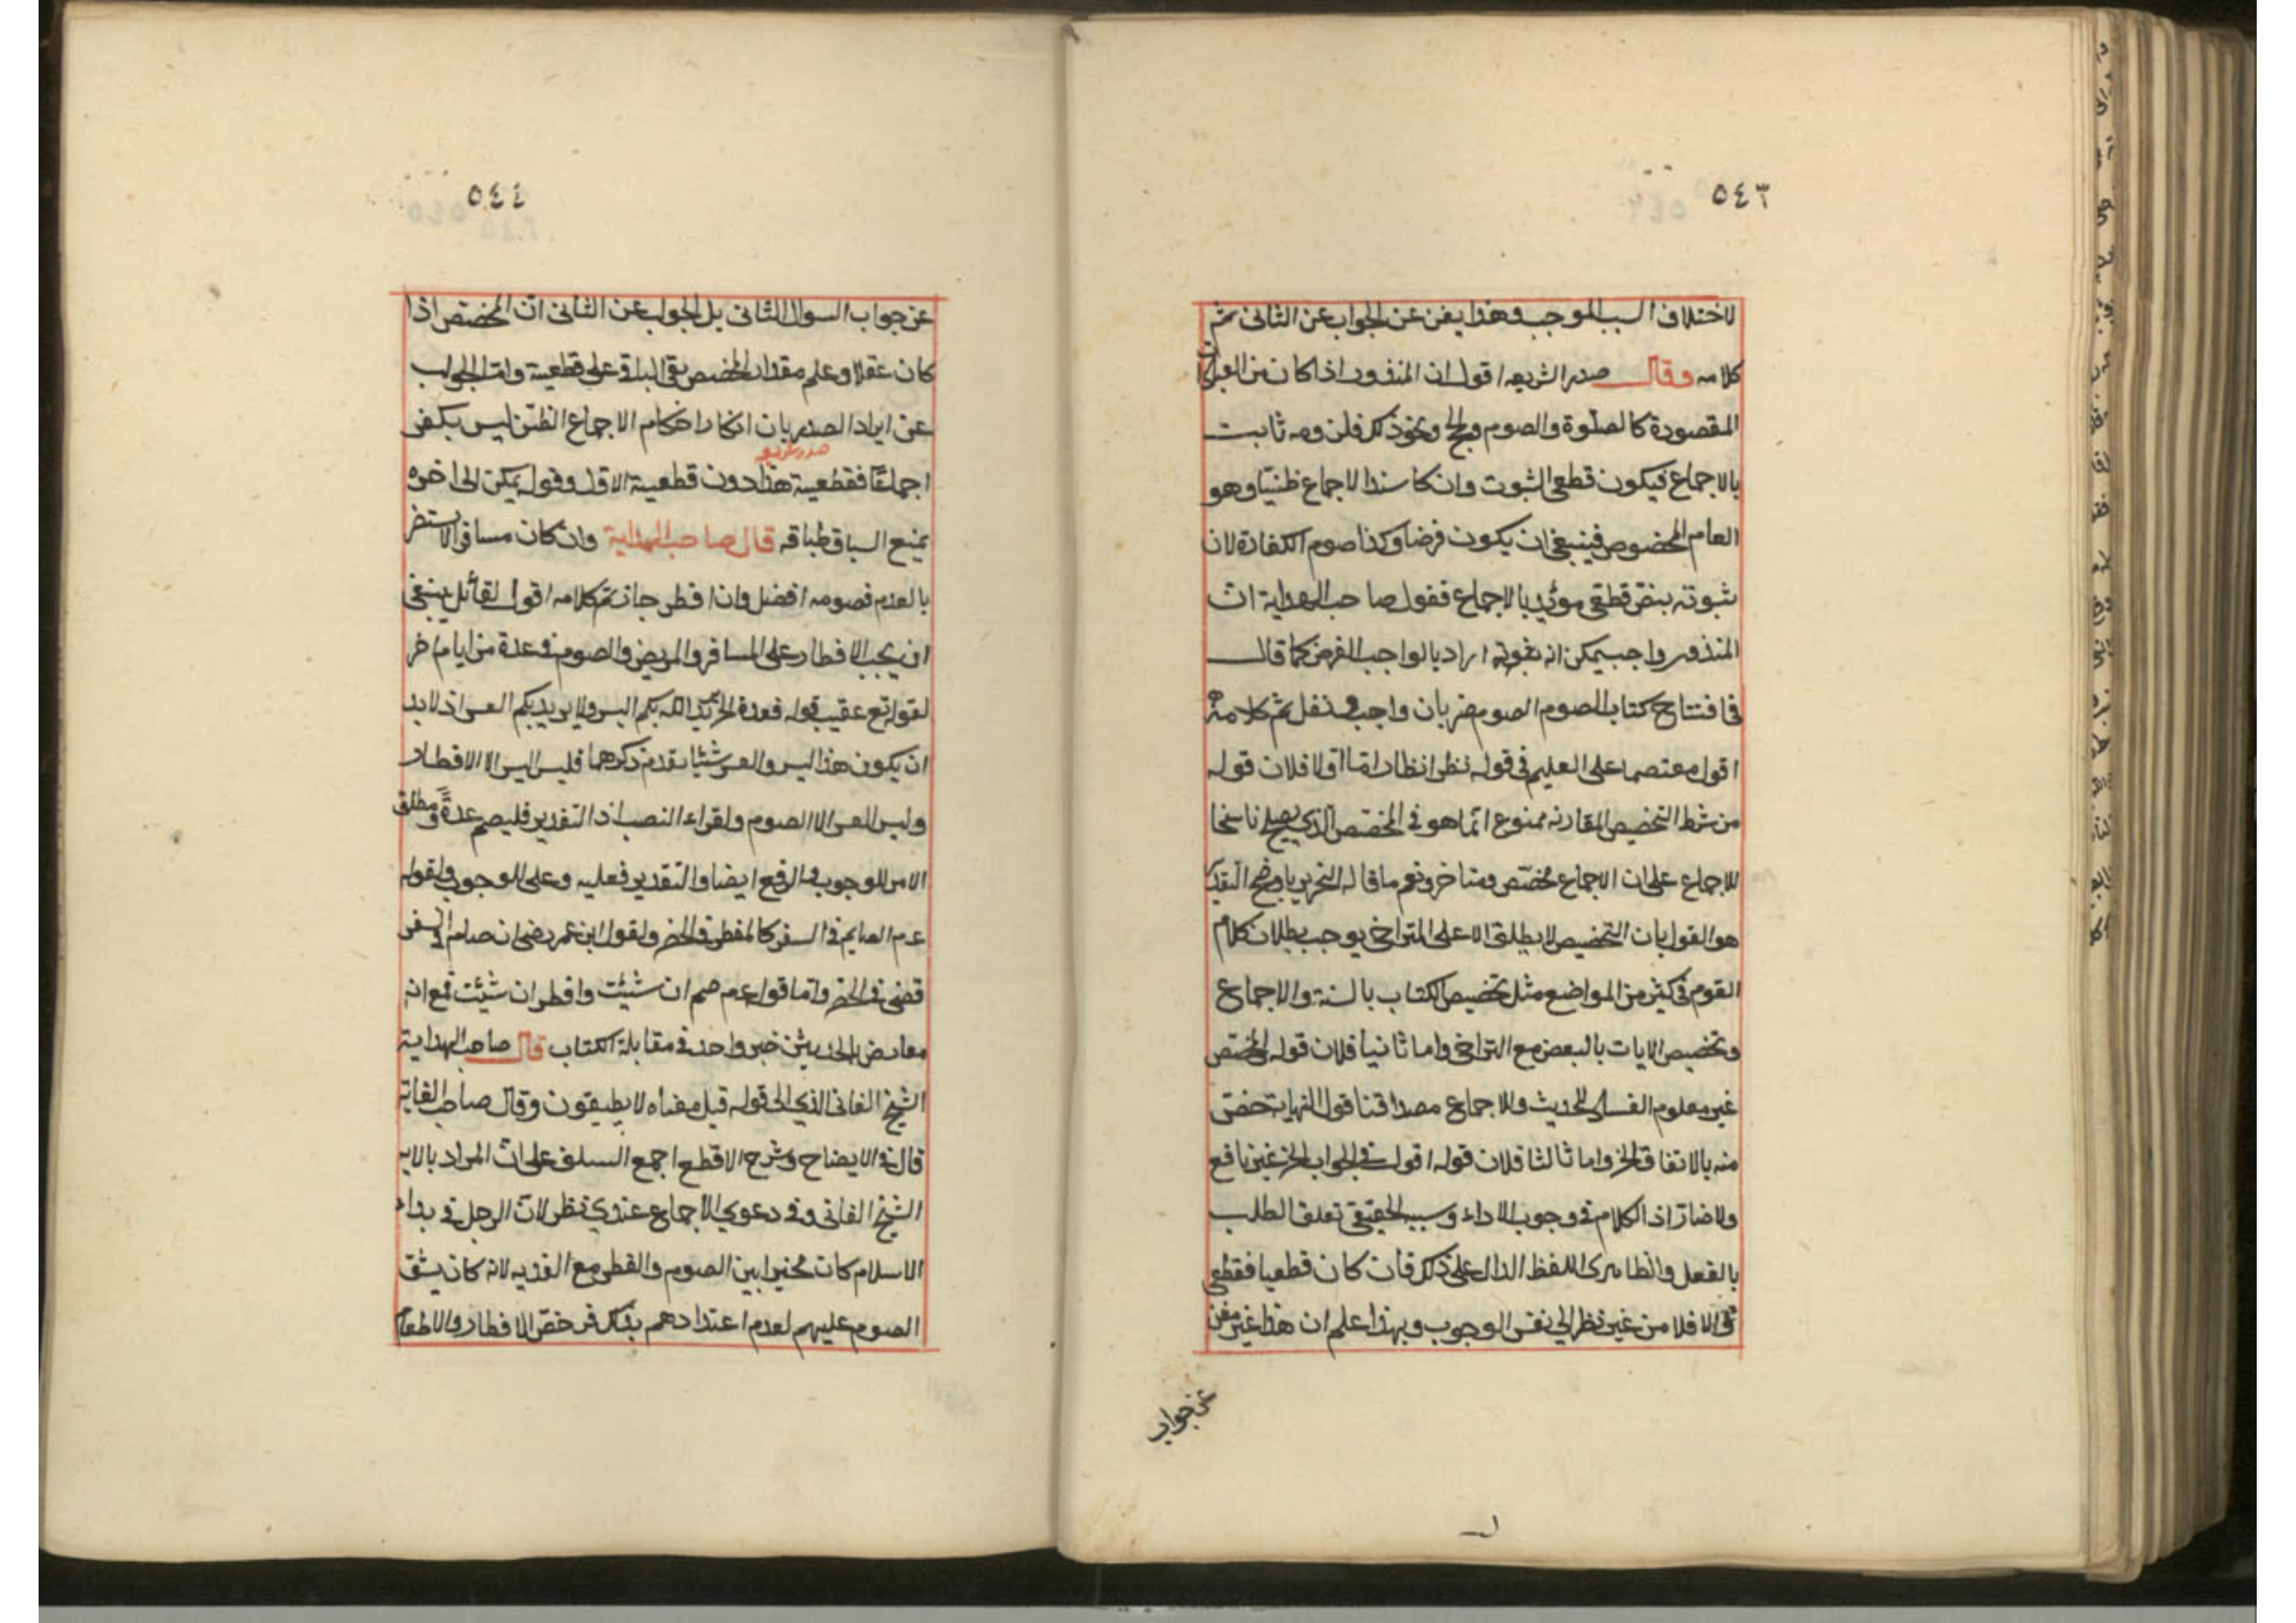 ٥٤٣
لاختلاف السبب الموجب وهذا يغن عن الجواب عن الثاني تم
كلامه وقال صدر الشريعه اقول ان المنذور اذا كان من العبادات
المقصودة كالصلوة والصوم والحج ونحو ذلك فلزومه ثابت
بالاجماع فيكون قطعي الثبوت وان كا سند الاجماع ظنيا وهو
العام المخصوص فينبغي ان يكون فرضا وكذا صوم الكفارة لان
ثبوته بنص قطعي مؤيد بالاجماع فقول صاحب الهداية ان
المنذور واجب يمكن انه اراد بالواجب الفرض كما قال
في افتتاح كتاب الصوم الصوم ضربان واجب ونفل تم كلامه
اقول معتصما على العليم في قوله نظر انظار اما اولا فلان قوله
من شرط التخصيص المقارنه ممنوع انما هو في المخصص الذي يصلح ناسخا
للاجماع على ان الاجماع مخصص ومتاخر ونعم ما قاله النحرير
هو القول بان التخصيص لا يطلق الا على المتراخي يوجب بطلان كلام
القوم في كثير من المواضع مثل تخصيص الكتاب بالسنة والاجماع
وتخصيص الايات بالبعض مع التراخي واما ثانيا فلان قوله المخصص
غير معلوم الحديث والاجماع قول النهاية خص
منه بالاتفاق الخ واما ثالثا فلان قوله اقول في الجواب الخ غير نافع
ولا ضار اذ الكلام في وجوب الاداء وسببه الحقيقي تعلق الطلب
بالفعل والظاهري اللفظ الدال على ذلك فان كان قطعيا فقطعي
والا فلا من غير نظر الي نفس الوجوب وبهذا علم ان هذا غير مغن
عن جواب
٥٤٤
عن جواب السوال الثاني بل الجواب عن الثاني ان المخصص اذا
كان عقلا وعلم مقدار المخصص بقي الباقي على قطعية واما الجواب
عن ايراد الصدر بان انكار احكام الاجماع الظني ليس بكفر
صدر شريعه
اجماعا فقطعية هذا دون قطعية الاول وقوله يمكن الى اخره
يمنع السباق طباقه قال صاحب الهداية وان كان مسافرا لا يستضر
بالصوم فصومه افضل وان افطر جاز تم كلامه اقول لقائل ينبغي
ان يجب الافطار على المسافر والمريض والصوم في عدة من ايام اخر
لقوله تع عقيب قوله فعدة الخ يريد الله بكم اليسر ولا يريد بكم العسر اذ لا بد
ان يكون هذا اليسر والعسر شيئا تقدم ذكرهما فليس اليسر الا الافطار
وليس العسر الا الصوم ولقراء النصب اذ التقدير فليصم عدة ومطلق
الامر للوجوب وفي الرفع ايضا والتقدير فعليه وعلى للوجوب ولقوله
عم الصايم في السفر كالمفطر في الحضر ولقول ابن عمر رضي ان صام في السفر
قضى في الحضر واما قوله عم صم ان شئت وافطر ان شئت فمع انه
معارض بالحديثين خبر واحد في مقابلة الكتاب قال صاحب الهداية
الشيخ الفاني الذي الى قوله قيل معناه لا يطيقون وقال صاحب الغاية
قال في الايضاح وشرح الاقطع اجمع السلف على ان المراد بالايه
الشيخ الفاني وفي دعوي الاجماع عندي نظر لان الرجل في بداء
الاسلام كان مخيرا بين الصوم والفطر مع الفديه لانه كان يشق
الصوم عليهم لعدم اعتدادهم بذلك فرخص الافطار والاطعام